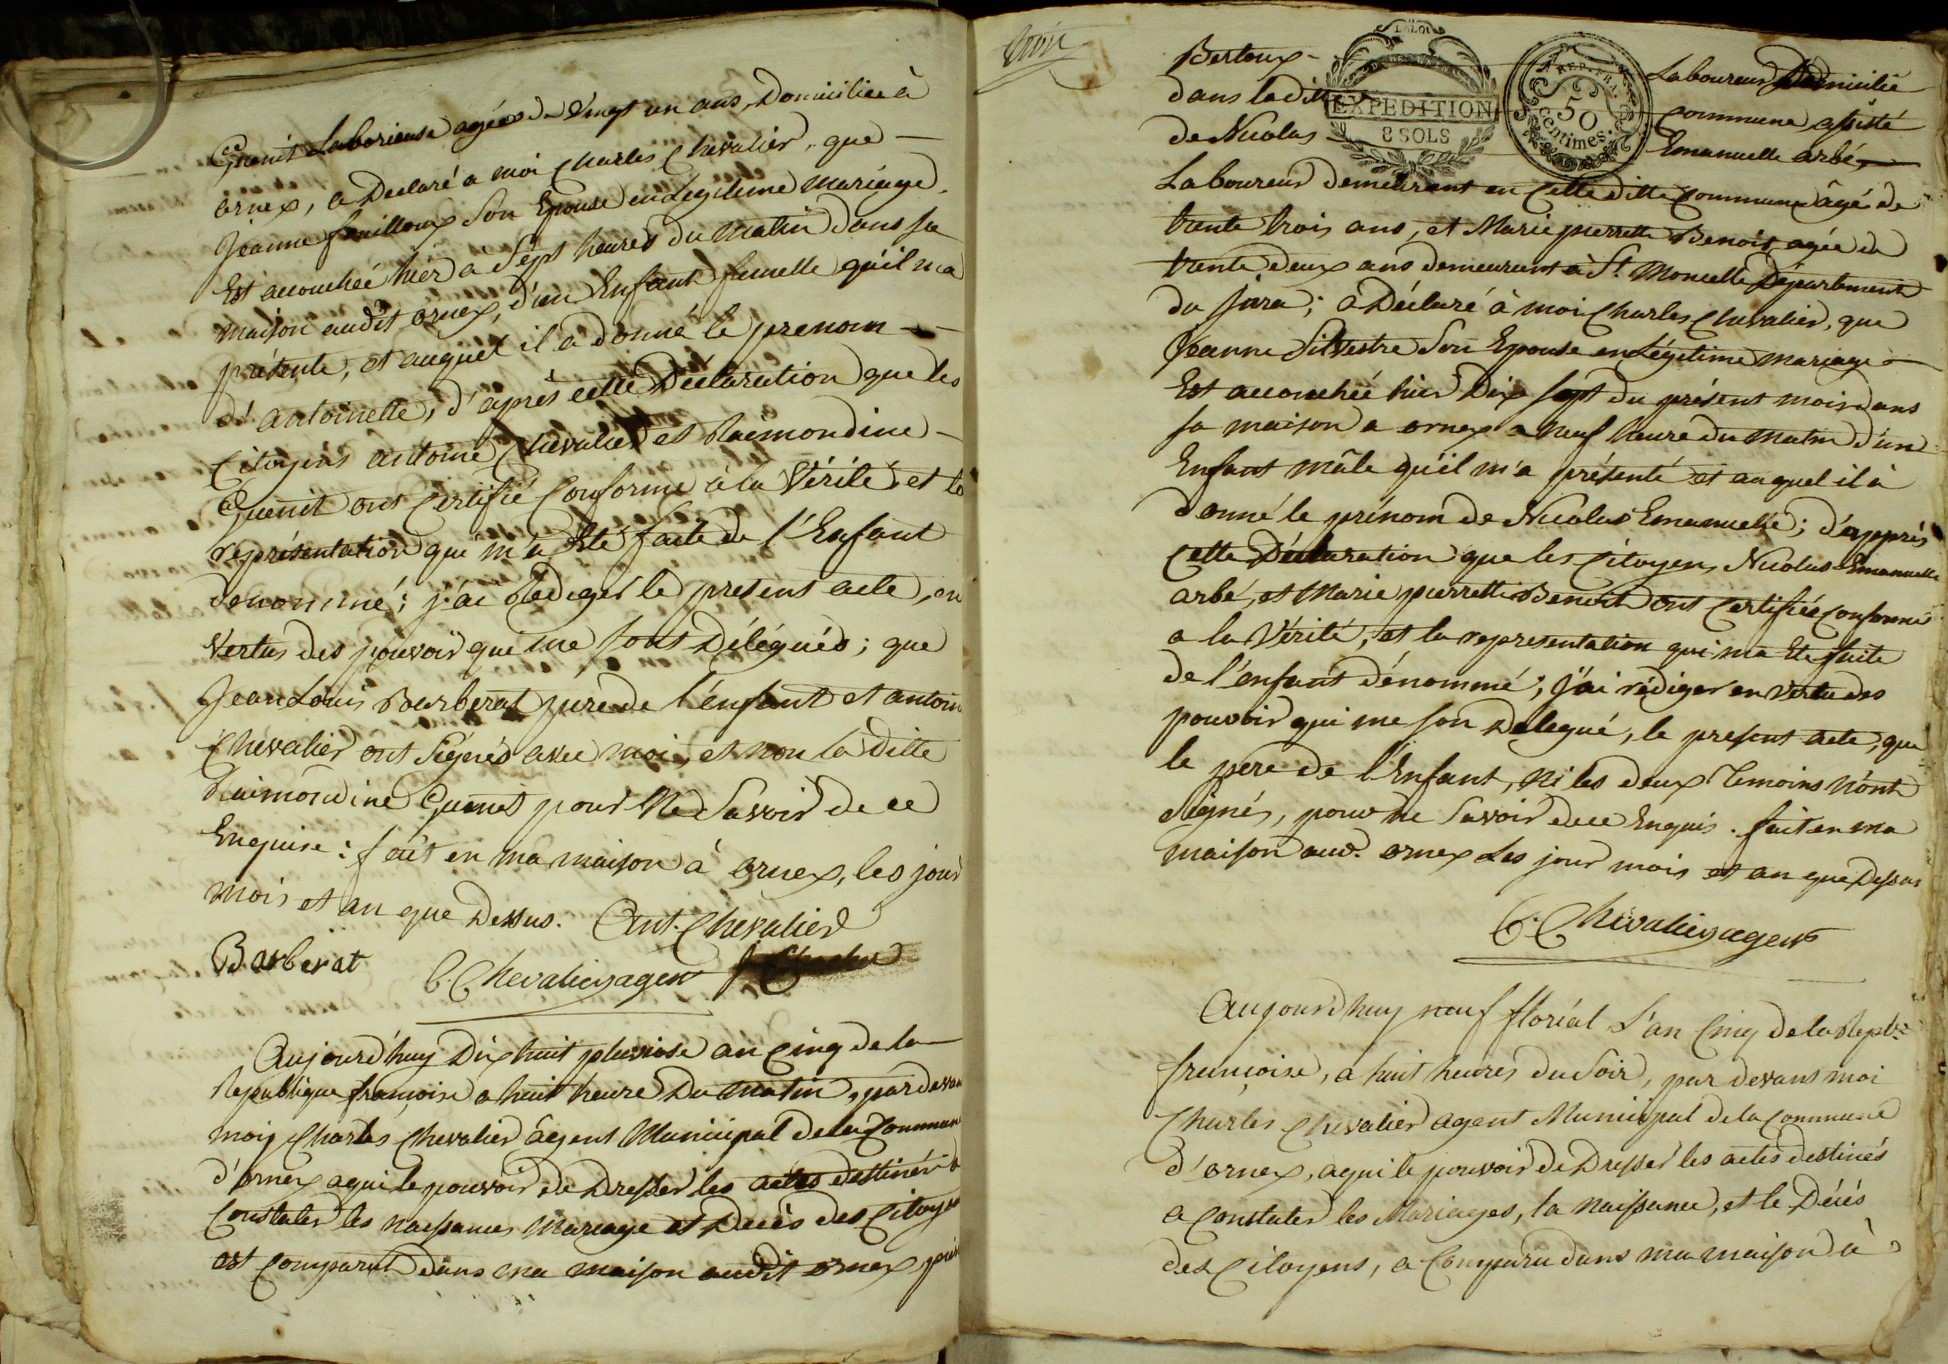 Guenit Laborieuse agées de Vingt un ans, Domiciliée à
ornex, a Declaré a moi Charles Chevalier, que
Jeanne fouilloux Son Epouse en Légitime Mariage
Est accouchée hier a Sept heures du Matin Dans sa
maison audit ornex, d'un Enfant femelle qu'il m'a
présenté, et auquel il a donné le prenom
d'antoinette, d'après cette Déclaration que les
Citoyens antoine Chevalier et Raimondine
Guenit ont Certifié Conforme à la Vérité et la
représentation qui m'a Eté faite de l'Enfant
denommé; j'ai Rediger le present acte, en
Vertus des pouvoir que me sont Délégués; que
Jean Louis Barberat père de l'enfant et antoin
Chevalier ont Signés avec moi, et non la Ditte
Raimondine Guenit pour Ne Savoir de ce
Enquise: fait en ma maison à ornex, les jour
mois et an que Dessus. Ant. Chevalier
Barberat C. Chevalier agent
Aujourd'huy Dix huit pluviose an Cinq de la
Republique françoise a huit heure Du matin, par devan
moi Charles Chevalier agent Municipal de la Commun
d'ornex a qui le pouvoir de Dresser les actes destinés à
Constater les naissances Mariage et Décès des Citoyen
est Comparut dans ma maison audit ornex
Bertoux Laboureur Domicilié
dans la ditte commune assisté
de Nicolas Emanuelle arbé
EXPEDITION
8 SOLS
REP. FRA.
50
Centimes.
Laboureur demeurant en Cette ditte Commune âgé de
trente trois ans, et Marie pierrette Benoit agée de
trente deux ans demeurant à St. Moncelle Département
du Jura; a Déclaré à moi Charles Chevalier, que
Jeanne Silvestre Son Epouse en Légitime Mariage
Est accouchée hier Dix sept du présent mois dans
sa maison a ornex a neuf heure du matin d'un
Enfant mâle qu'il m'a présenté et auquel il à
donné le prénom de Nicolas Emanuelle; d'apprés
Cette Déclaration que les Citoyens Nicolas Emanuelle
arbé, et Marie pierrette Benoit ont Certifiée Conforme
a la Vérité, et la representation qui ma Ete faite
de l'enfant dénommé; j'ai rédiger en Vertu des
pouvoir qui me son Delegué, le present acte, que
le pere de l'Enfant, Ni les deux Temoins N'ont
Signés, pour ne Savoir de ce Enquis. fait en ma
maison aud. ornex Les jour mois et an que Dessus
C. Chevalier agent
Aujourd'huy neuf floréal l'an Cinq de la Repbe.
françoise, a huit heures du Soir, par devans moi
Charles Chevalier agent Municipal de la Commune
d'ornex, a qui le pouvoir de Dresser les actes destinés
a Constater les Mariages, la Naissance, et le Décès
des Citoyens, a Comparu dans ma maison à